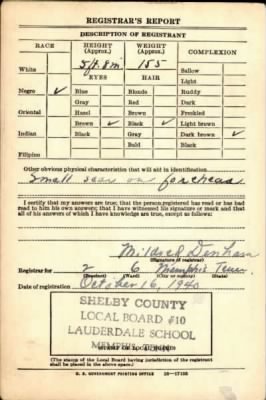 REGISTRAR'S REPORT
DESCRIPTION OF REGISTRANT
RACE HEIGHT (Approx.) WEIGHT (Approx.) COMPLEXION
White 5 ft. 8 in 155 Sallow
EYES HAIR Light
Negro ✓ Blue Blonde Ruddy
Gray Red Dark
Oriental Hazel Brown Freckled
Brown ✓ Black ✓ Light brown
Indian Black Gray Dark brown ✓
Bald Black
Filipino
Other obvious physical characteristics that will aid in identification
Small scar on forehead
I certify that my answers are true; that the person registered has read or has
read to him his own answers; that I have witnessed his signature or mark and that
all of his answers of which I have knowledge are true, except as follows:
Mildred Denham
(Signature of registrar)
Registrar for 2 6 Memphis Tenn
(Precinct) (Ward) (City or county) (State)
Date of registration October 16, 1940
SHELBY COUNTY
LOCAL BOARD #10
LAUDERDALE SCHOOL
MEMPHIS
(The stamp of the Local Board having jurisdiction of the registrant
shall be placed in the above space.)
U. S. GOVERNMENT PRINTING OFFICE 16—17105